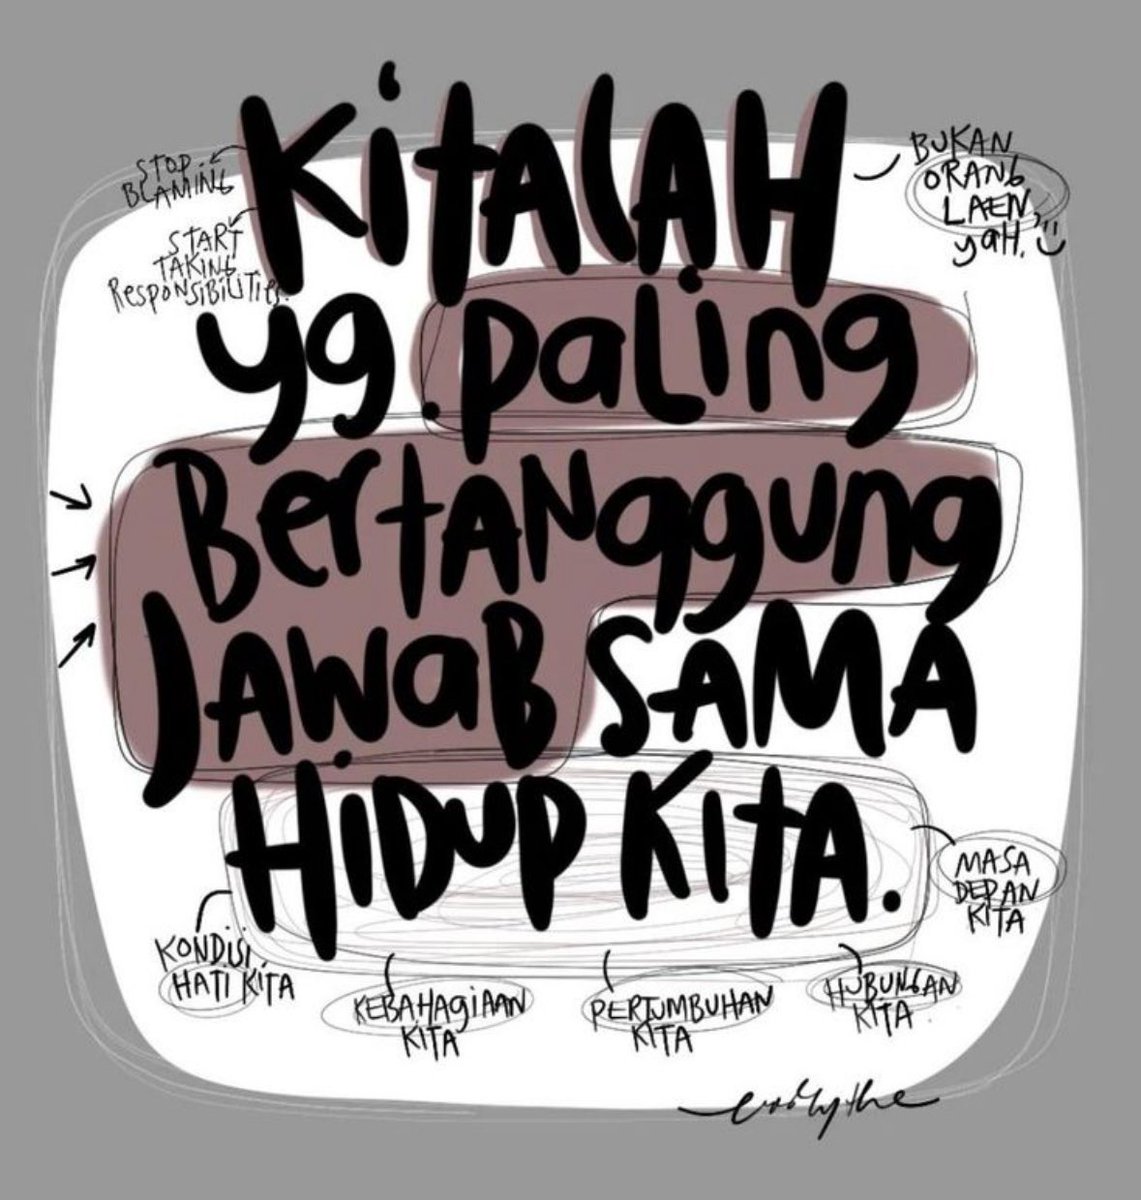 KitalAH
yg paling
BertANggung
JAWaB SAMA
HiDup KitA.
STOP
BLAMING
START
TAKING
ResponsiBiliTies.
BUKAN
ORANG
LAEN,
yaH. :)
KONDiSi
HATI KITA
KEBAHAgiAAN
KITA
PERTUMBUHAN
KITA
HUBUNGAN
KITA
MASA
DEPAN
KITA